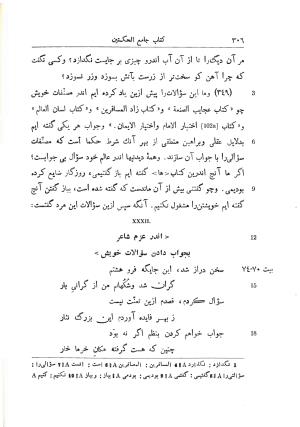 ۳۰۶ کتاب جامع الحکمتین
مر آن دیگر را تا از آن آب اندرو چیزی بر جایست نگدازد؟ وکسی نگفت
که چرا آهن کو سخت‌تر از زرست بآتش بسوزد وزر نسوزد؟
3 (۳۴۹) وما این سؤالات را پیش ازین یاد کرده ایم اندر مصنّفات خویش
چو «کتاب عجایب الصنعة » و«کتاب زاد المسافرین » و« کتاب لسان العالم»
و« کتاب [102a] اختیار الامام واختیار الایمان.» وجواب هر یکی گفته ایم
6 بدلایل عقلی وبراهین منطقی از بهر آنک شرط حکما است که مصنّفات
سؤالی را با جواب آن سازند. وهمهٔ دیدنیها اندر عالم خود سؤال بی جوابست؛
اگر ما آنچ اندرین کتاب «ها» گفته ایم باز گفتیمی، وروزگار ضایع کرده
9 بودیمی. وچو گفتنی بیش از آن ماندست که گفته شده است، بباز گفتن آنچ
گفته ایم خویشتن را مشغول نکنیم. آنگه سپس ازین سؤالات این مرد گفت
XXXII.
12 < اندر عزم شاعر
بجواب دادن سؤالات خویش >
بیت ۷۰-۷۴ سخن دراز شد، این جایگه فرو هشتم
15 گران شد وشکُهام من از گرانی بار
سؤال کردم، قصدم ازین تعنّت نیست
ز بهر فایده آوردم این بزرگ نثار
18 جواب خواهم کردن بنظم اگر نه بوَد
چنین که هست گرفته مکان خرما خار